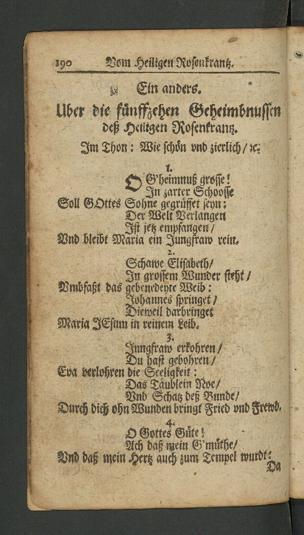 190 Vom Heiligen Rosenkrantz.
Ein anders.
Uber die fünffzehen Geheimbnussen
deß Heiligen Rosenkrantz.
Im Thon: Wie schön vnd zierlich/ ꝛc.
1.
O G'heimnuß grosse!
In zarter Schoosse
Soll GOttes Sohne gegrüsset seyn:
Der Welt Verlangen
Ist jetz empfangen/
Vnd bleibt Maria ein Jungfraw rein.
2.
Schawe Elisabeth/
In grossem Wunder steht/
Vmbfaßt das gebenedeyte Weib:
Johannes springet/
Dieweil darbringet
Maria JEsum in reinem Leib.
3.
Jungfraw erkohren/
Du hast gebohren/
Eva verlohren die Seeligkeit:
Das Täublein Noe/
Vnd Schatz deß Bunde/
Durch dich ohn Wunden bringt Fried vnd Frewd.
4.
O Gottes Güte!
Ach daß mein G'müthe/
Vnd daß mein Hertz auch zum Tempel wurdt!
Da